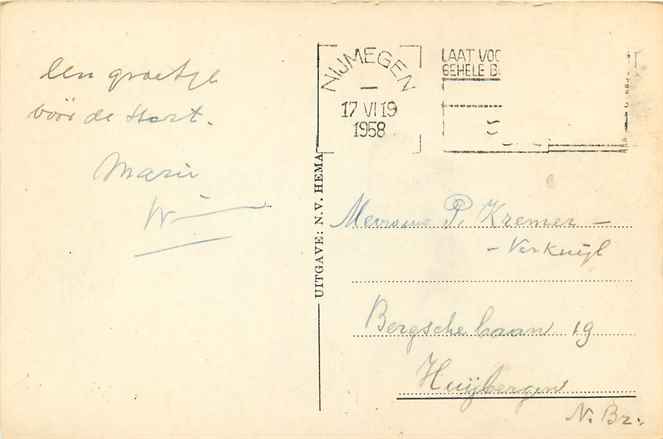 Een groetje
vóór de start.
Marie
Wim
UITGAVE: N.V. HEMA
NIJMEGEN
17 VI 19
1958
LAAT VOO
GEHELE B
Mevrouw P. Kremer -
- Verkuijl
Bergsche laan 19
Huijbergen
N. Br.